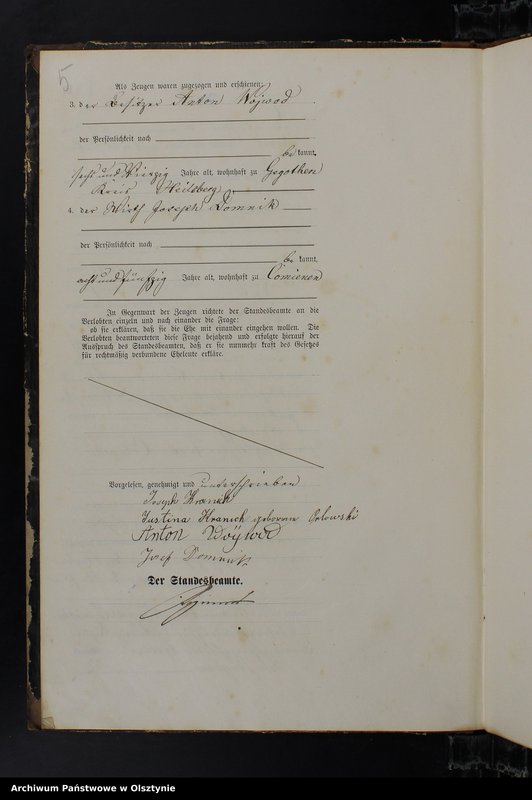 5
Als Zeugen waren zugezogen und erschienen:
3. der Besitzer Anton Wojwod
der Persönlichkeit nach
be kannt,
sechs und Vierzig Jahre alt, wohnhaft zu Gegothen
Kreis Heilsberg
4. der Wirth Joseph Domnik
der Persönlichkeit nach
be kannt,
acht und fünfzig Jahre alt, wohnhaft zu Comienen
In Gegenwart der Zeugen richtete der Standesbeamte an die
Verlobten einzeln und nach einander die Frage:
ob sie erklären, daß sie die Ehe mit einander eingehen wollen. Die
Verlobten beantworteten diese Frage bejahend und erfolgte hierauf der
Ausspruch des Standesbeamten, daß er sie nunmehr kraft des Gesetzes
für rechtmäßig verbundene Eheleute erkläre.
Vorgelesen, genehmigt und unterschrieben
Joseph Hranich
Justina Hranich geborene Orlowski
Anton Woÿwod
Josef Domnik
Der Standesbeamte.
Archiwum Państwowe w Olsztynie